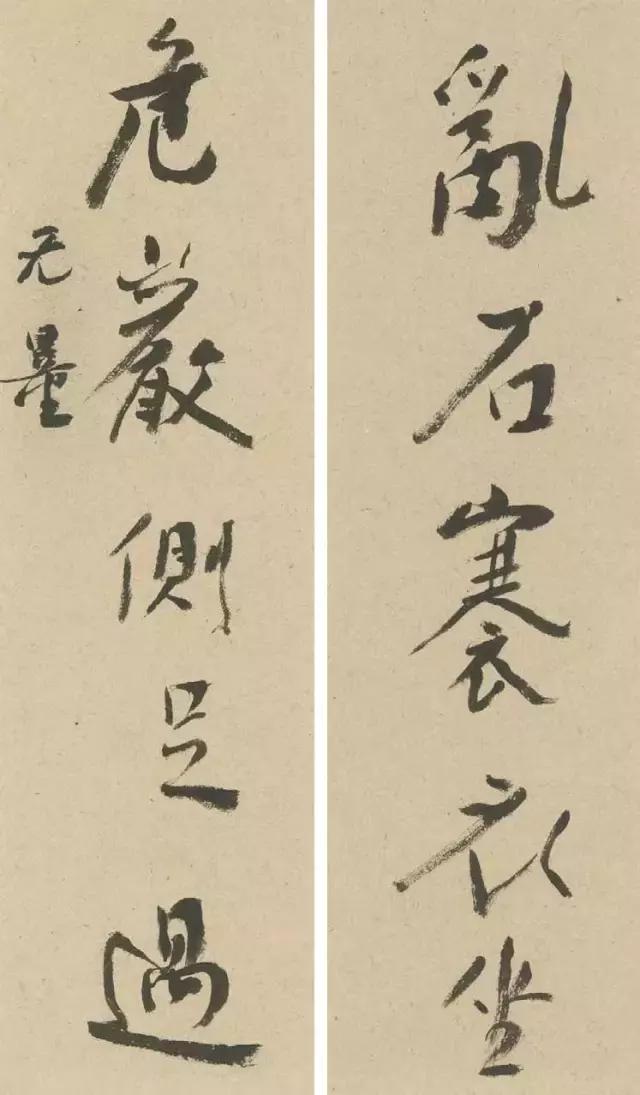 亂石褰衣坐
危巖側足過
无量